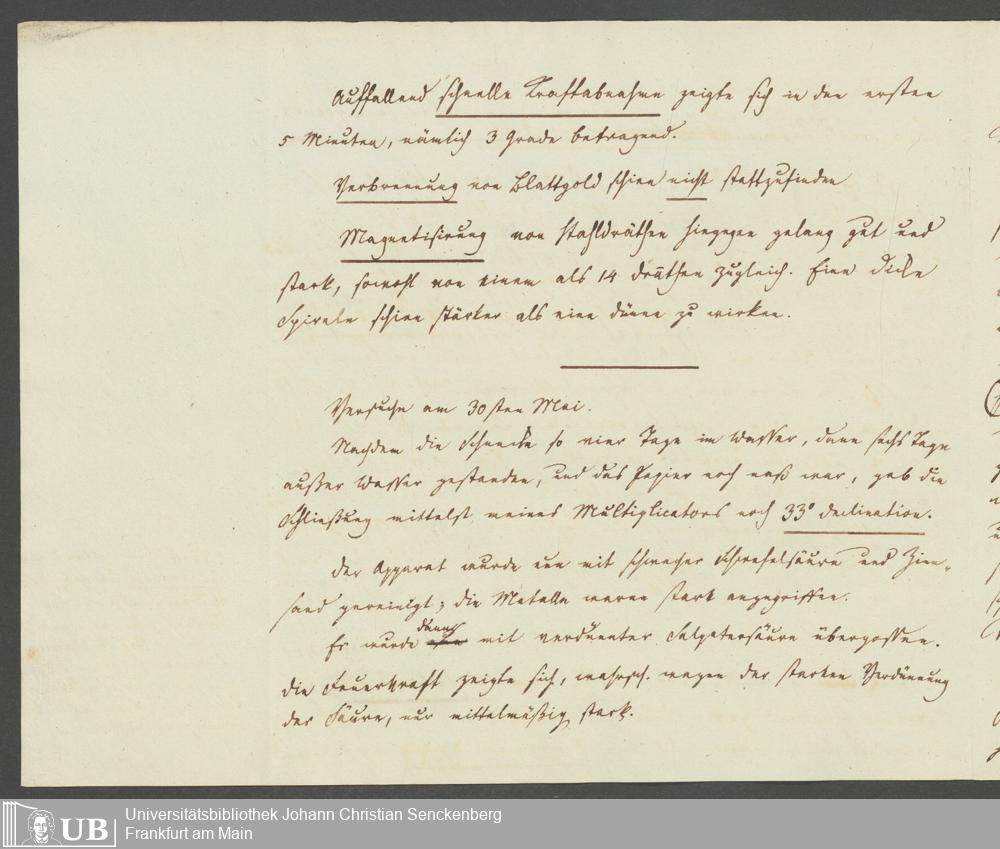 Auffallend schnelle Kraftabnahme zeigte sich in den ersten
5 Minuten, nämlich 3 Grade betragend.
Verbrennung von Blattgold schien nicht stattzufinden
Magnetisirung von Stahldräthen hingegen gelang gut und
stark, sowohl von einem als 14 Dräthen zugleich. Eine dicke
Spirale schien stärker als eine dünne zu wirken.
Versuche am 30sten Mai.
Nachdem die Schnecke so vier Tage im Wasser, dann sechs Tage
außer Wasser gestanden, und das Papier noch naß war, gab die
Schließung mittelst meines Multiplicators noch 33° declination.
Der Apparat wurde nun mit schwacher Schwefelsäure und Zinn-
sand gereinigt; die Metalle waren stark angegriffen.
Er wurde dann mit verdünnter Salpetersäure übergossen.
Die Feuerkraft zeigte sich, wahrsch. wegen der starken Verdünnung
der Säure, nur mittelmäßig stark.
UB
Universitätsbibliothek Johann Christian Senckenberg
Frankfurt am Main